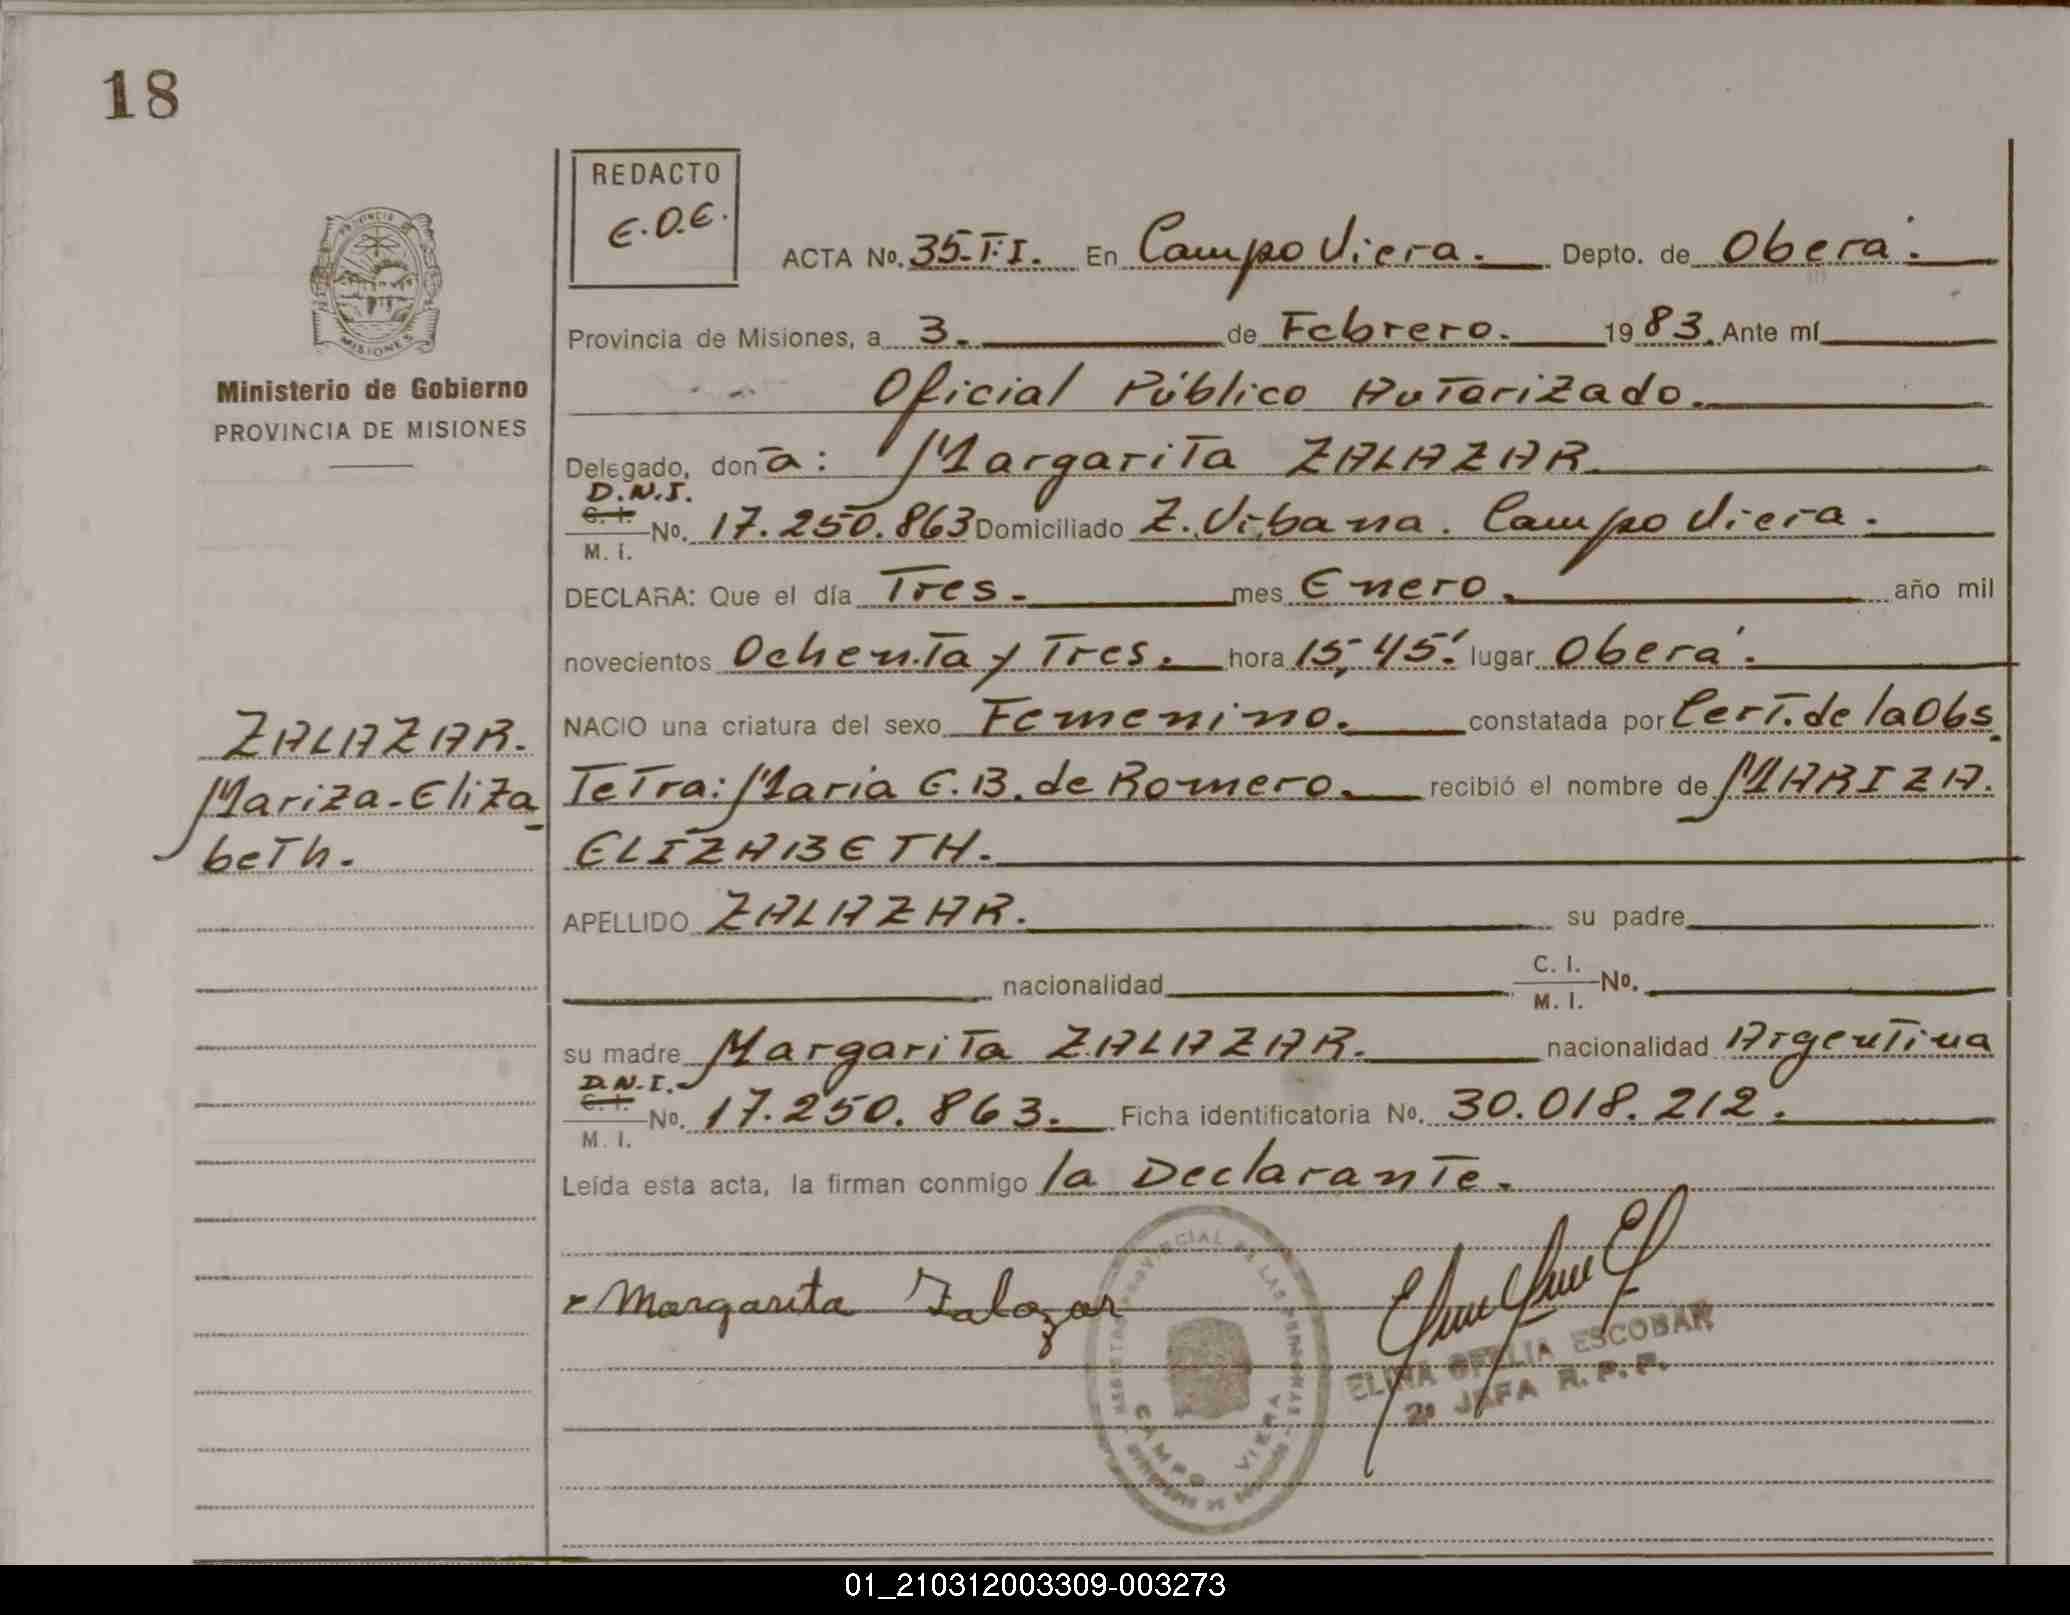 18
REDACTO
E.O.E.
ACTA No. 35-T:I. En Campo Viera. Depto. de Oberá.
Provincia de Misiones, a 3. de Febrero. 1983. Ante mí
Oficial Público Autorizado.
Ministerio de Gobierno
PROVINCIA DE MISIONES
Delegado, don a: Margarita ZALAZAR
D.N.I.
C. I.
M. I. No. 17.250.863 Domiciliado Z. Urbana. Campo Viera.
DECLARA: Que el día Tres. mes Enero. año mil
novecientos Ochenta y Tres. hora 15,45' lugar Oberá.
NACIO una criatura del sexo Femenino. constatada por Cert. de la Obs
Tetra: María E. B. de Romero. recibió el nombre de MARIZA.
ELIZABETH.
ZALAZAR.
Mariza-Eliza
beth.
APELLIDO ZALAZAR. su padre
nacionalidad C. I. M. I. No.
su madre Margarita ZALAZAR. nacionalidad Argentina
D.N.I.
C. I.
M. I. No. 17.250.863. Ficha identificatoria No. 30.018.212.
Leída esta acta, la firman conmigo la Declarante.
Margarita Zalazar
ELINA OFELIA ESCOBAR
2º JEFA R.P.P.
REGISTRO PROVINCIAL DE LAS PERSONAS
CAMPO VIERA
MISIONES
01_210312003309-003273